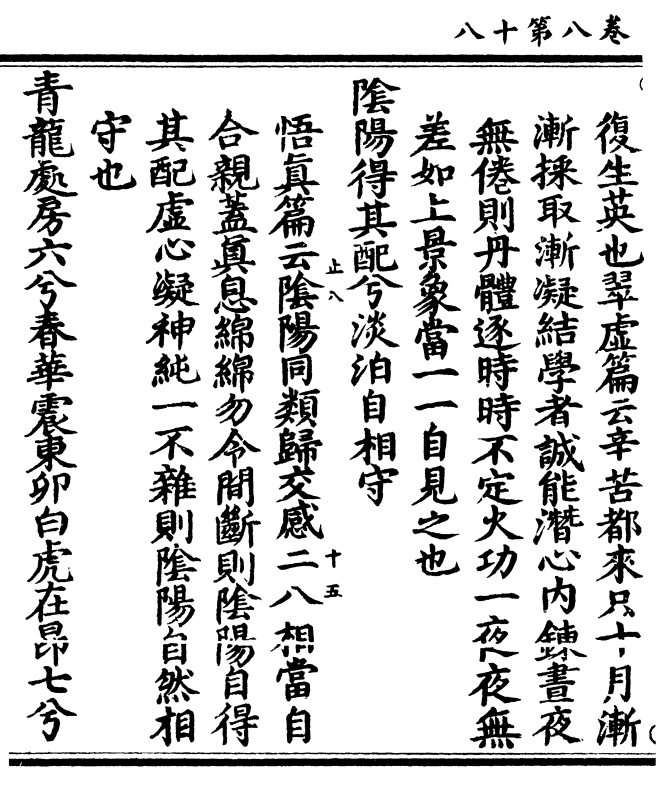 卷八第十八
復生英也翠虛篇云辛苦都來只十月漸
漸採取漸凝結學者誠能潛心內鍊晝夜
無倦則丹體逐時時不定火功一夜夜無
差如上景象當一一自見之也
陰陽得其配兮淡泊自相守
悟眞篇云陰陽同類歸交感二八相當自
止八
十五
合親蓋眞息綿綿勿令間斷則陰陽自得
其配虛心凝神純一不雜則陰陽自然相
守也
青龍處房六兮春華震東卯白虎在昴七兮